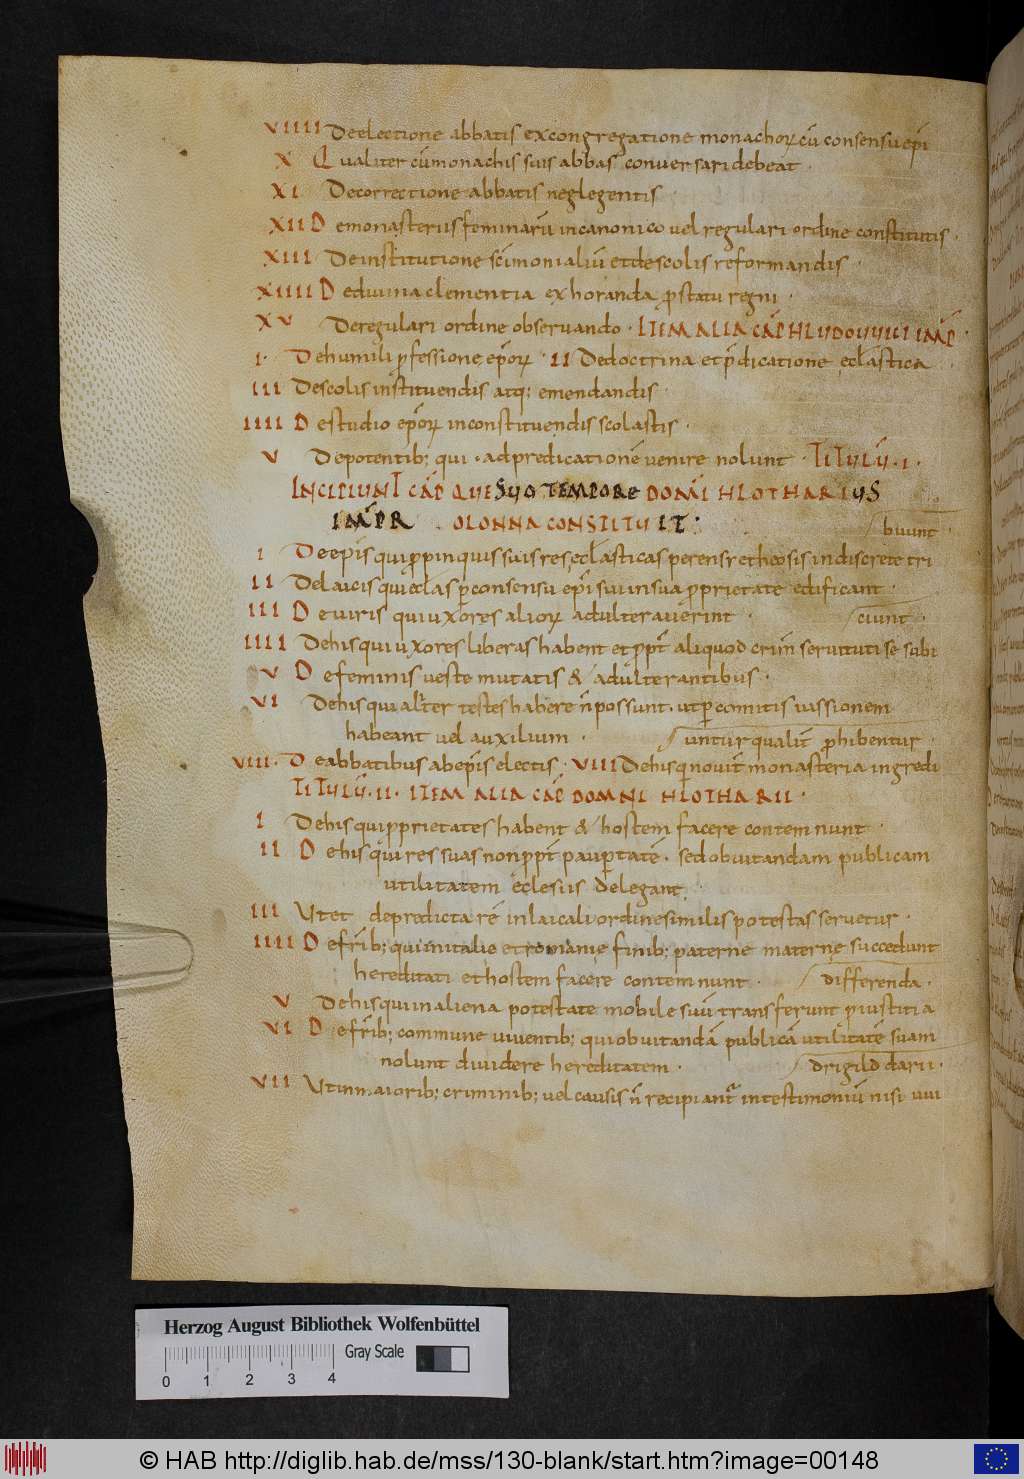 VIIII De electione abbatis ex congregatione monachoꝝ cū consensu ep̄i
X Qualiter cū monachis suis abbas conversari debeat ·
XI De correctione abbatis neglegentis ·
XII De monasteriis feminarū in canonico vel regulari ordine constitutis ·
XIII De institutione sc̄imonialiū et de scolis reformandis ·
XIIII De divina clementia exhoranda ꝓ statu regni ·
XV De regulari ordine observando · ITEM ALIA CAP̄ HLUDOVVICI IMP̄ ·
I · De humili ꝓfessione ep̄oꝝ · II De doctrina et p̄dicatione ęcl̄astica ·
III De scolis instituendis atq; emendandis ·
IIII De studio ep̄oꝝ in constituendis scolastis ·
V De potentib; qui · ad predicationē venire nolunt · TITULŪ · I ·
INCIPIUNT CAP̄ QUE SUO TEMPORE DOMŇI HLOTHARIUS
IMPR̄ · OLONNA CONSTITUIT :
buunt
I De ep̄is qui ꝓpinquis suis res ęcl̄asticas per ensr̄ et heosis indiscrete tri
II De laicis qui ecl̄as ꝑ consensu ep̄i sui in sua ꝓprietate edificant ·
III De viris qui uxores alioꝝ adulteraverint · ciunt ·
IIII De his qui uxores liberas habent et ꝓpt̄ aliquod crim̄ servituti se subi
V De feminis veste mutatis & adulterantibus ·
VI De his qui alit̄er testes habere n̄ possunt · ut ꝑ comitis iussionem
habeant vel auxilium · untur qualit̄ ꝓhibentur ·
VIII · De abbatibus ab ep̄is electis · VIII De his qui novit̄ monasteria ingredi
TITULŪ · II · ITEM ALIA CAP̄ DOMNI HLOTHARII ·
I De his qui ꝓprietates habent & hostem facere contemnunt ·
II De his qui res suas non ꝓpt̄ pauꝑtatē · sed ob vitandam publicam
utilitatem ęclesiis delegant ·
III Ut et de predicta rē in laicali ordine similis potestas servetur ·
IIII De fr̄ib; qui in italie et romanie finib; paterne materne succedunt
hereditati et hostem facere contemnunt · differenda ·
V De his qui in aliena potestate mobile suū transferunt ꝓ iustitia
VI De fr̄ib; commune viventib; qui ob vitandā publicā utilitatē suam
nolunt dividere hereditatem · drigild darii ·
VII Ut in maiorib; criminib; vel causis n̄ recipiant̄ in testimoniū nisi uui
Herzog August Bibliothek Wolfenbüttel
Gray Scale
0 1 2 3 4
© HAB http://diglib.hab.de/mss/130-blank/start.htm?image=00148